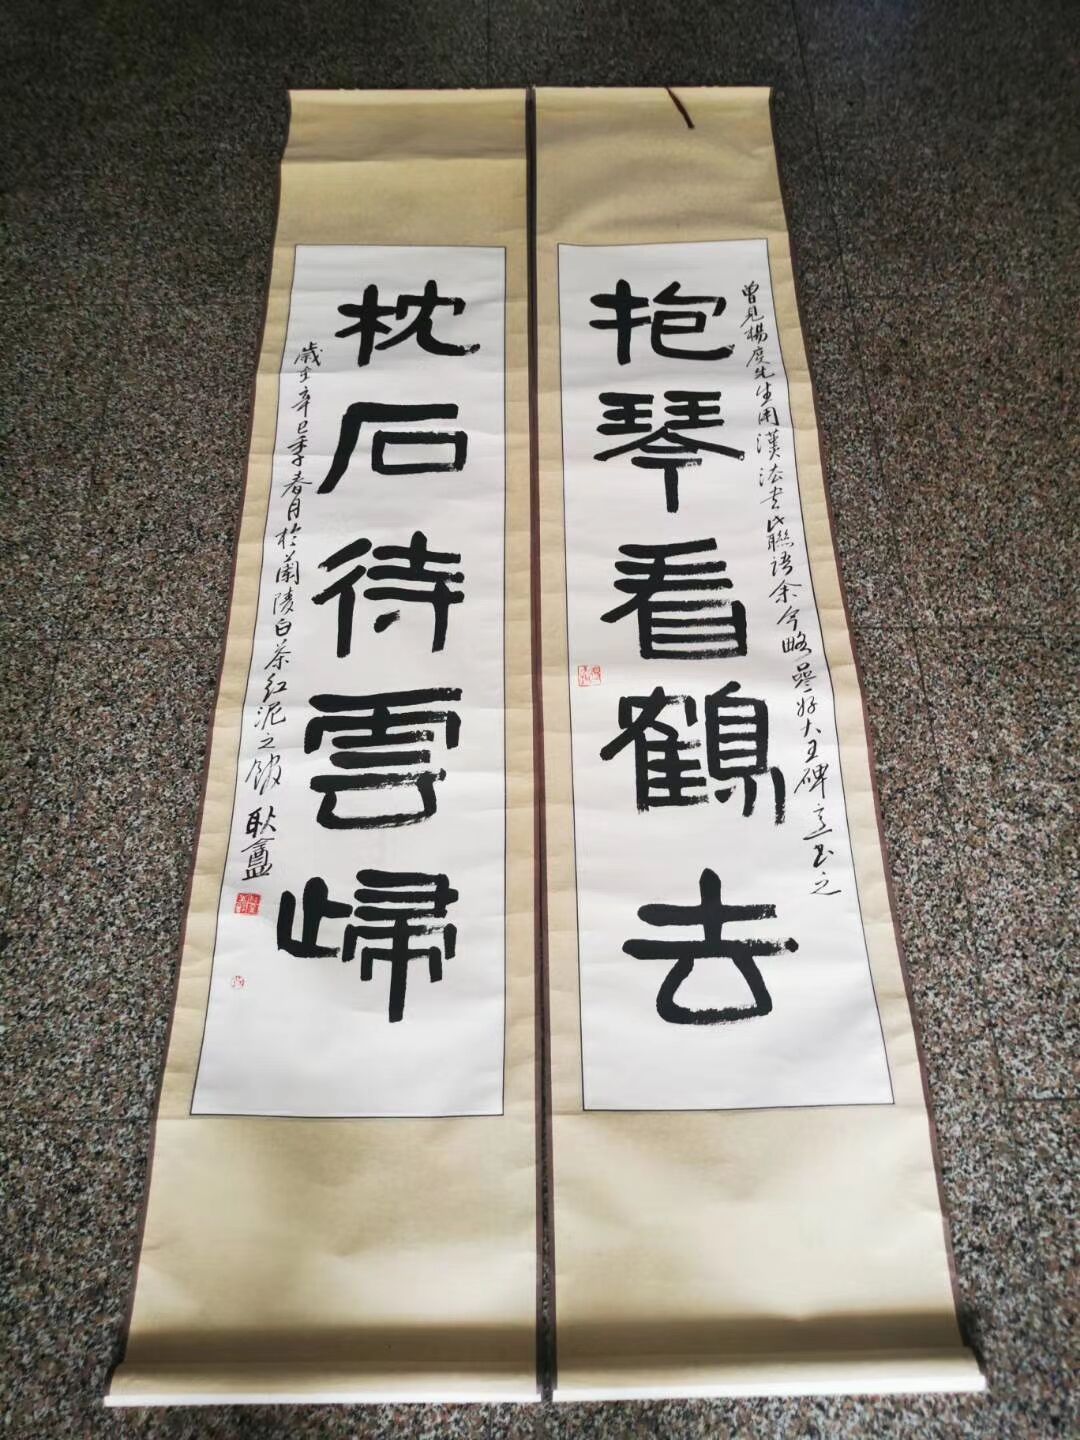 抱琴看鶴去
曾見楊庚先生用漢法書此聯語余今略參好大王碑意書之
枕石待雲歸
歲在辛巳季春月於蘭陵白茶紅泥之館 耿盦